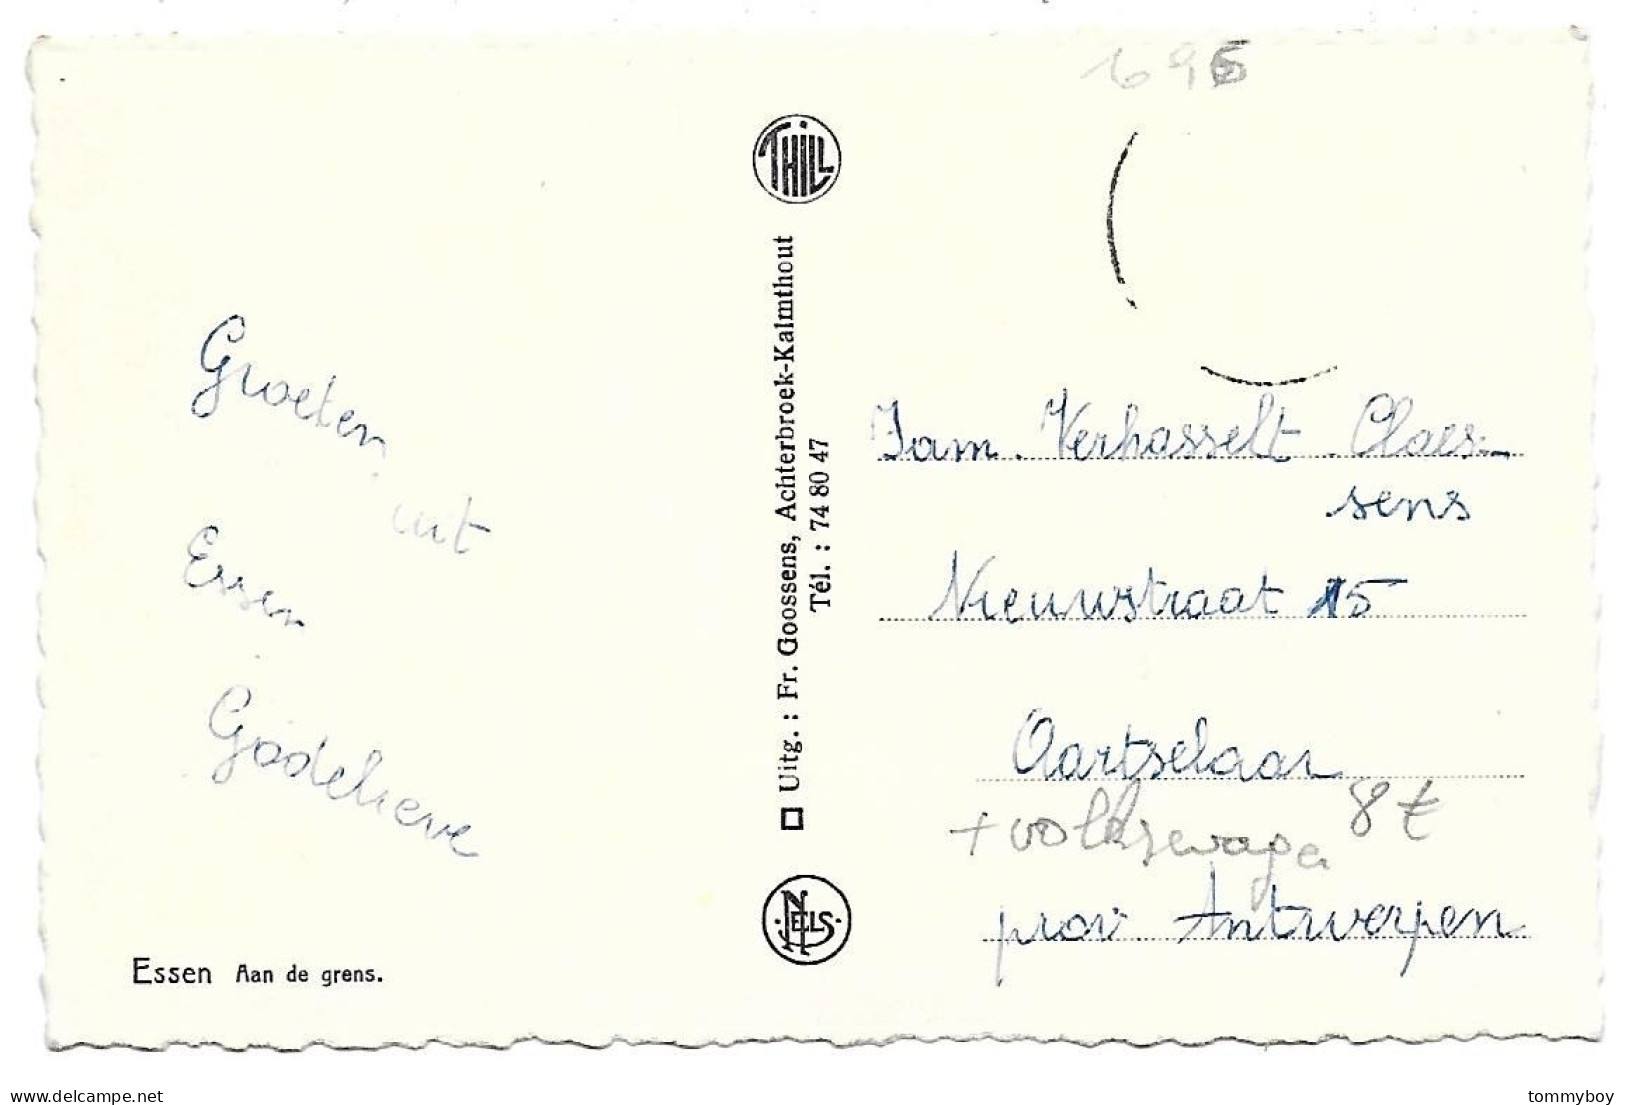 696
THILL
Groeten
uit
Essen
Godelieve
Essen Aan de grens.
Uitg. : Fr. Goossens, Achterbroek-Kalmthout
Tél. : 74 80 47
NELS
Fam. Verhasselt - Claes-
sens
Nieuwstraat 15
Aartselaar
+ volkswagen 8 €
prov. Antwerpen
www.delcampe.net
tommyboy